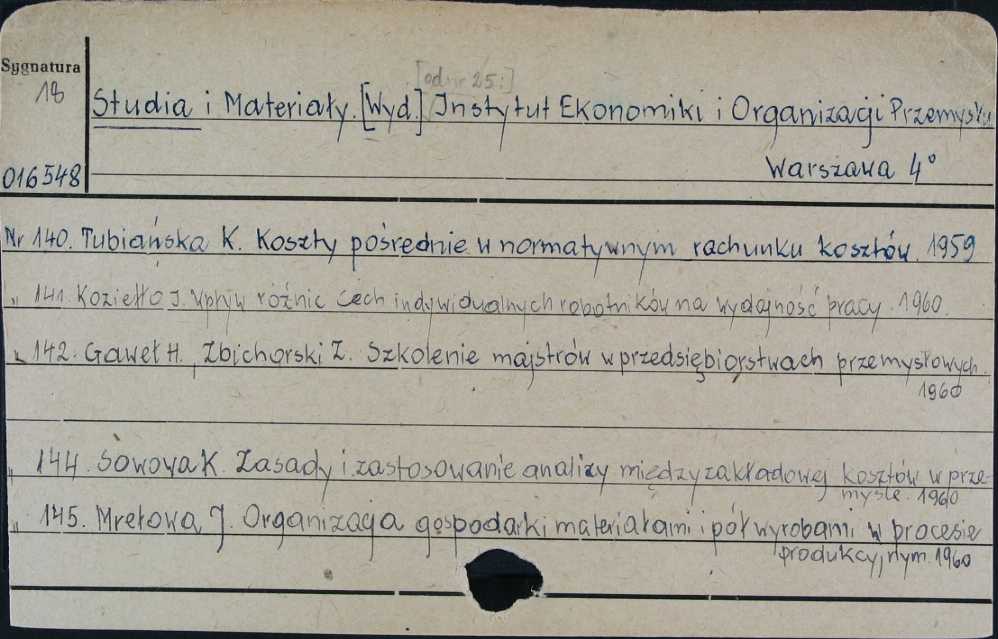 Sygnatura
18
[od nr 25:]
Studia i Materiały. [Wyd.] Instytut Ekonomiki i Organizacji Przemysłu
Warszawa 4°
016548
Nr 140. Tubiańska K. Koszty pośrednie w normatywnym rachunku kosztów. 1959
„ 141. Koziełło J. Wpływ różnic cech indywidualnych robotników na wydajność pracy. 1960.
„ 142. Gaweł H., Zbichorski Z. Szkolenie majstrów w przedsiębiorstwach przemysłowych.
1960
„ 144. Sowowa K. Zasady i zastosowanie analizy międzyzakładowej kosztów w prze-
myśle. 1960
„ 145. Mretowa J. Organizacja gospodarki materiałami i półwyrobami w procesie
produkcyjnym. 1960